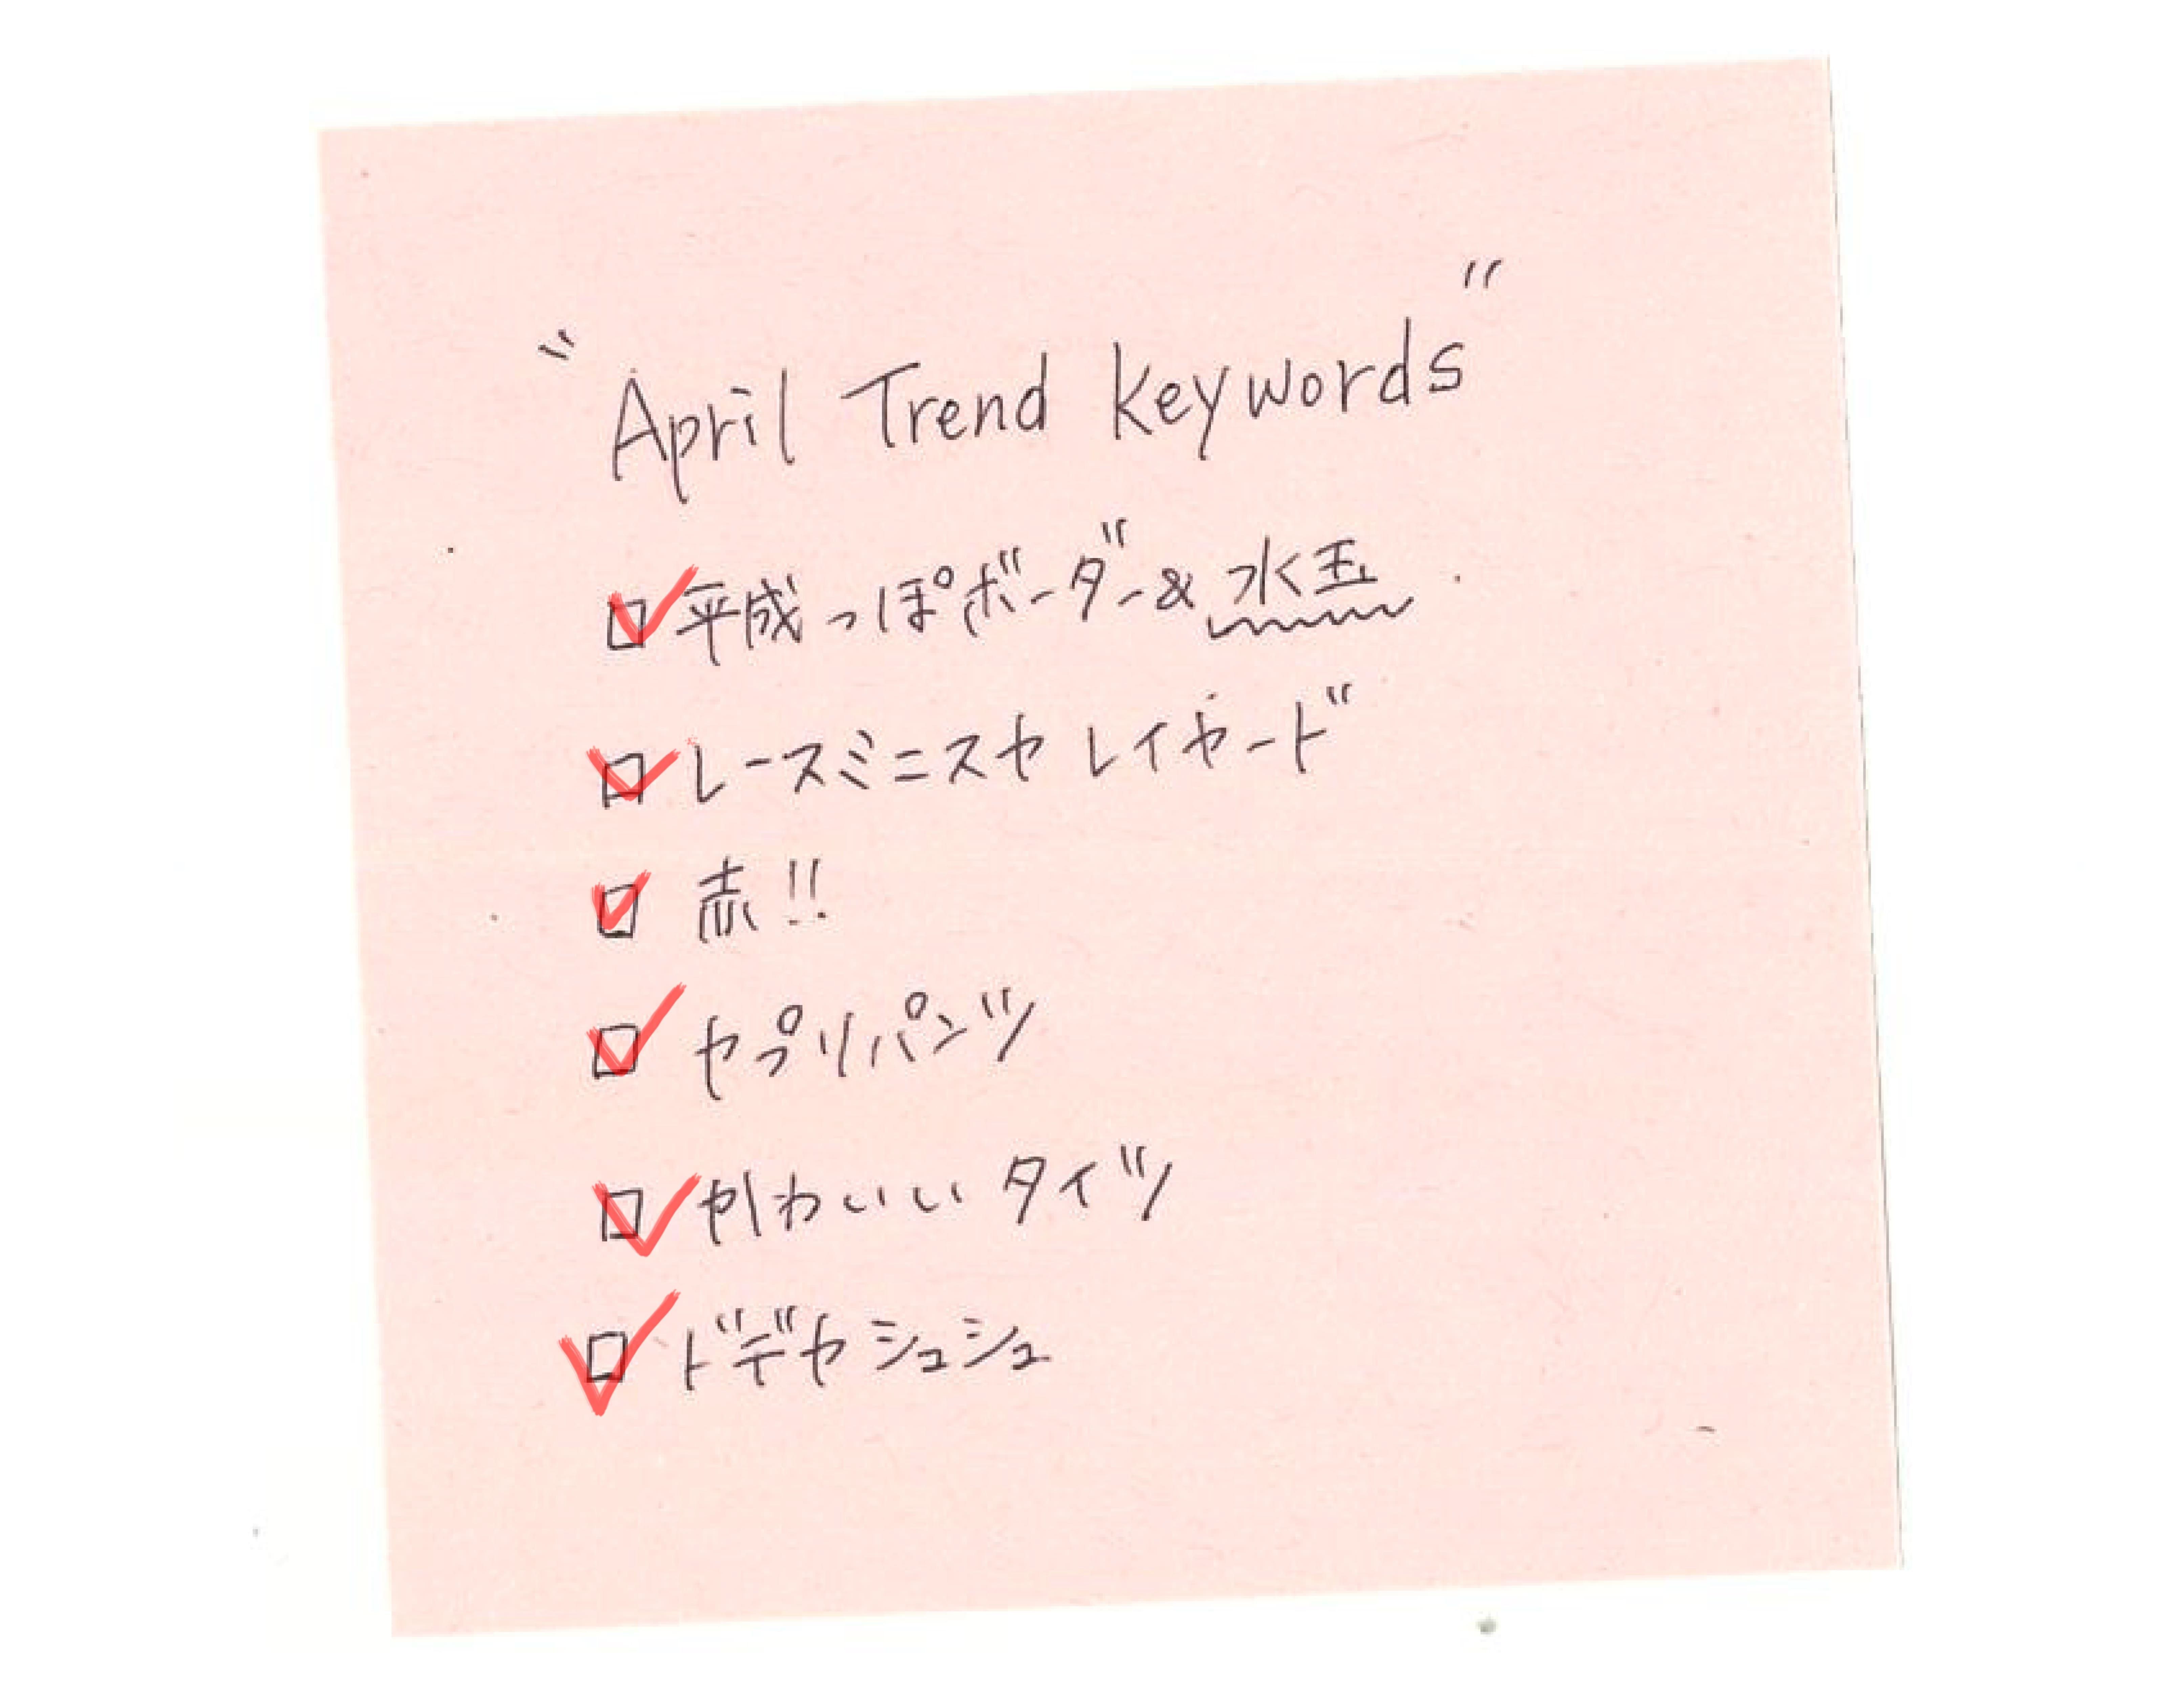 "April Trend keywords"
☑ 平成っぽボーダー&水玉
☑ レースミニスカ レイヤード
☑ 赤!!
☑ カプリパンツ
☑ かわいいタイツ
☑ ドデカシュシュ